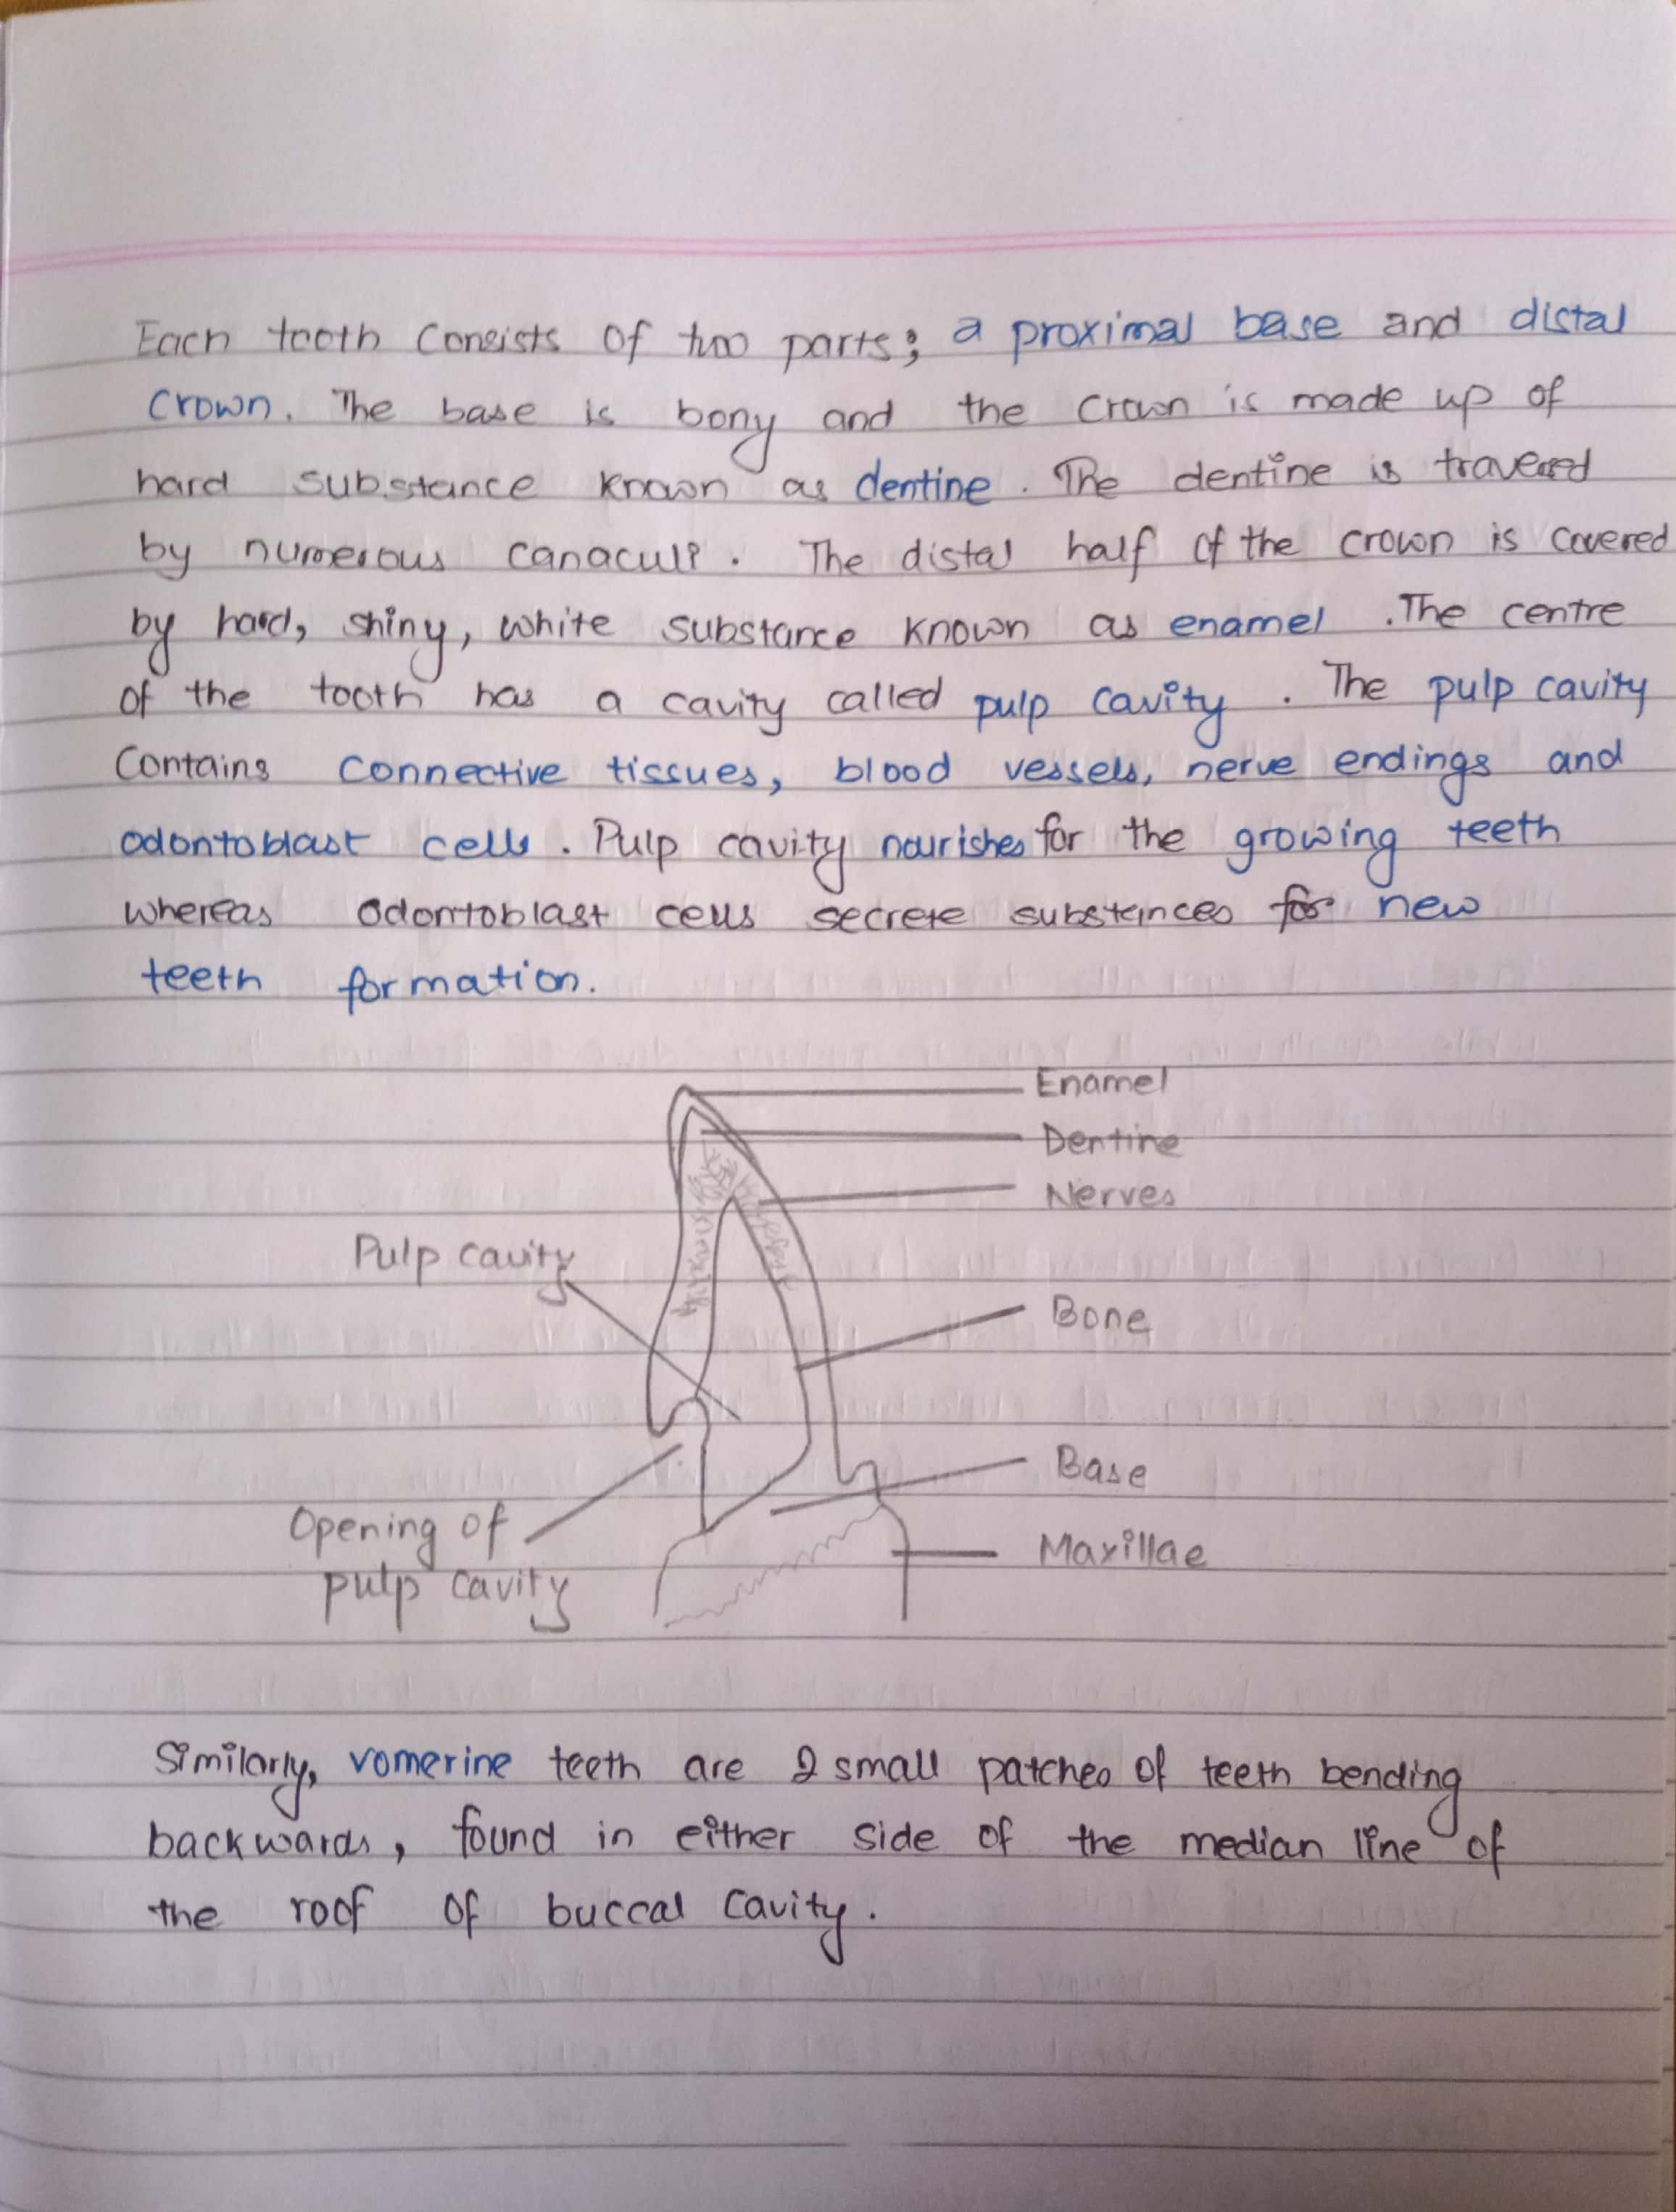 Each tooth consists of two parts; a proximal base and distal
crown. The base is bony and the crown is made up of
hard substance known as dentine. The dentine is traversed
by numerous canaculi. The distal half of the crown is covered
by hard, shiny, white substance known as enamel. The centre
of the tooth has a cavity called pulp cavity. The pulp cavity
contains connective tissues, blood vessels, nerve endings and
odontoblast cells. Pulp cavity nourishes for the growing teeth
whereas odontoblast cells secrete substances for new
teeth formation.
Enamel
Dentine
Nerves
Pulp cavity
Bone
Base
Opening of
pulp cavity
Maxillae
Similarly, vomerine teeth are 2 small patches of teeth bending
backwards, found in either side of the median line of
the roof of buccal cavity.